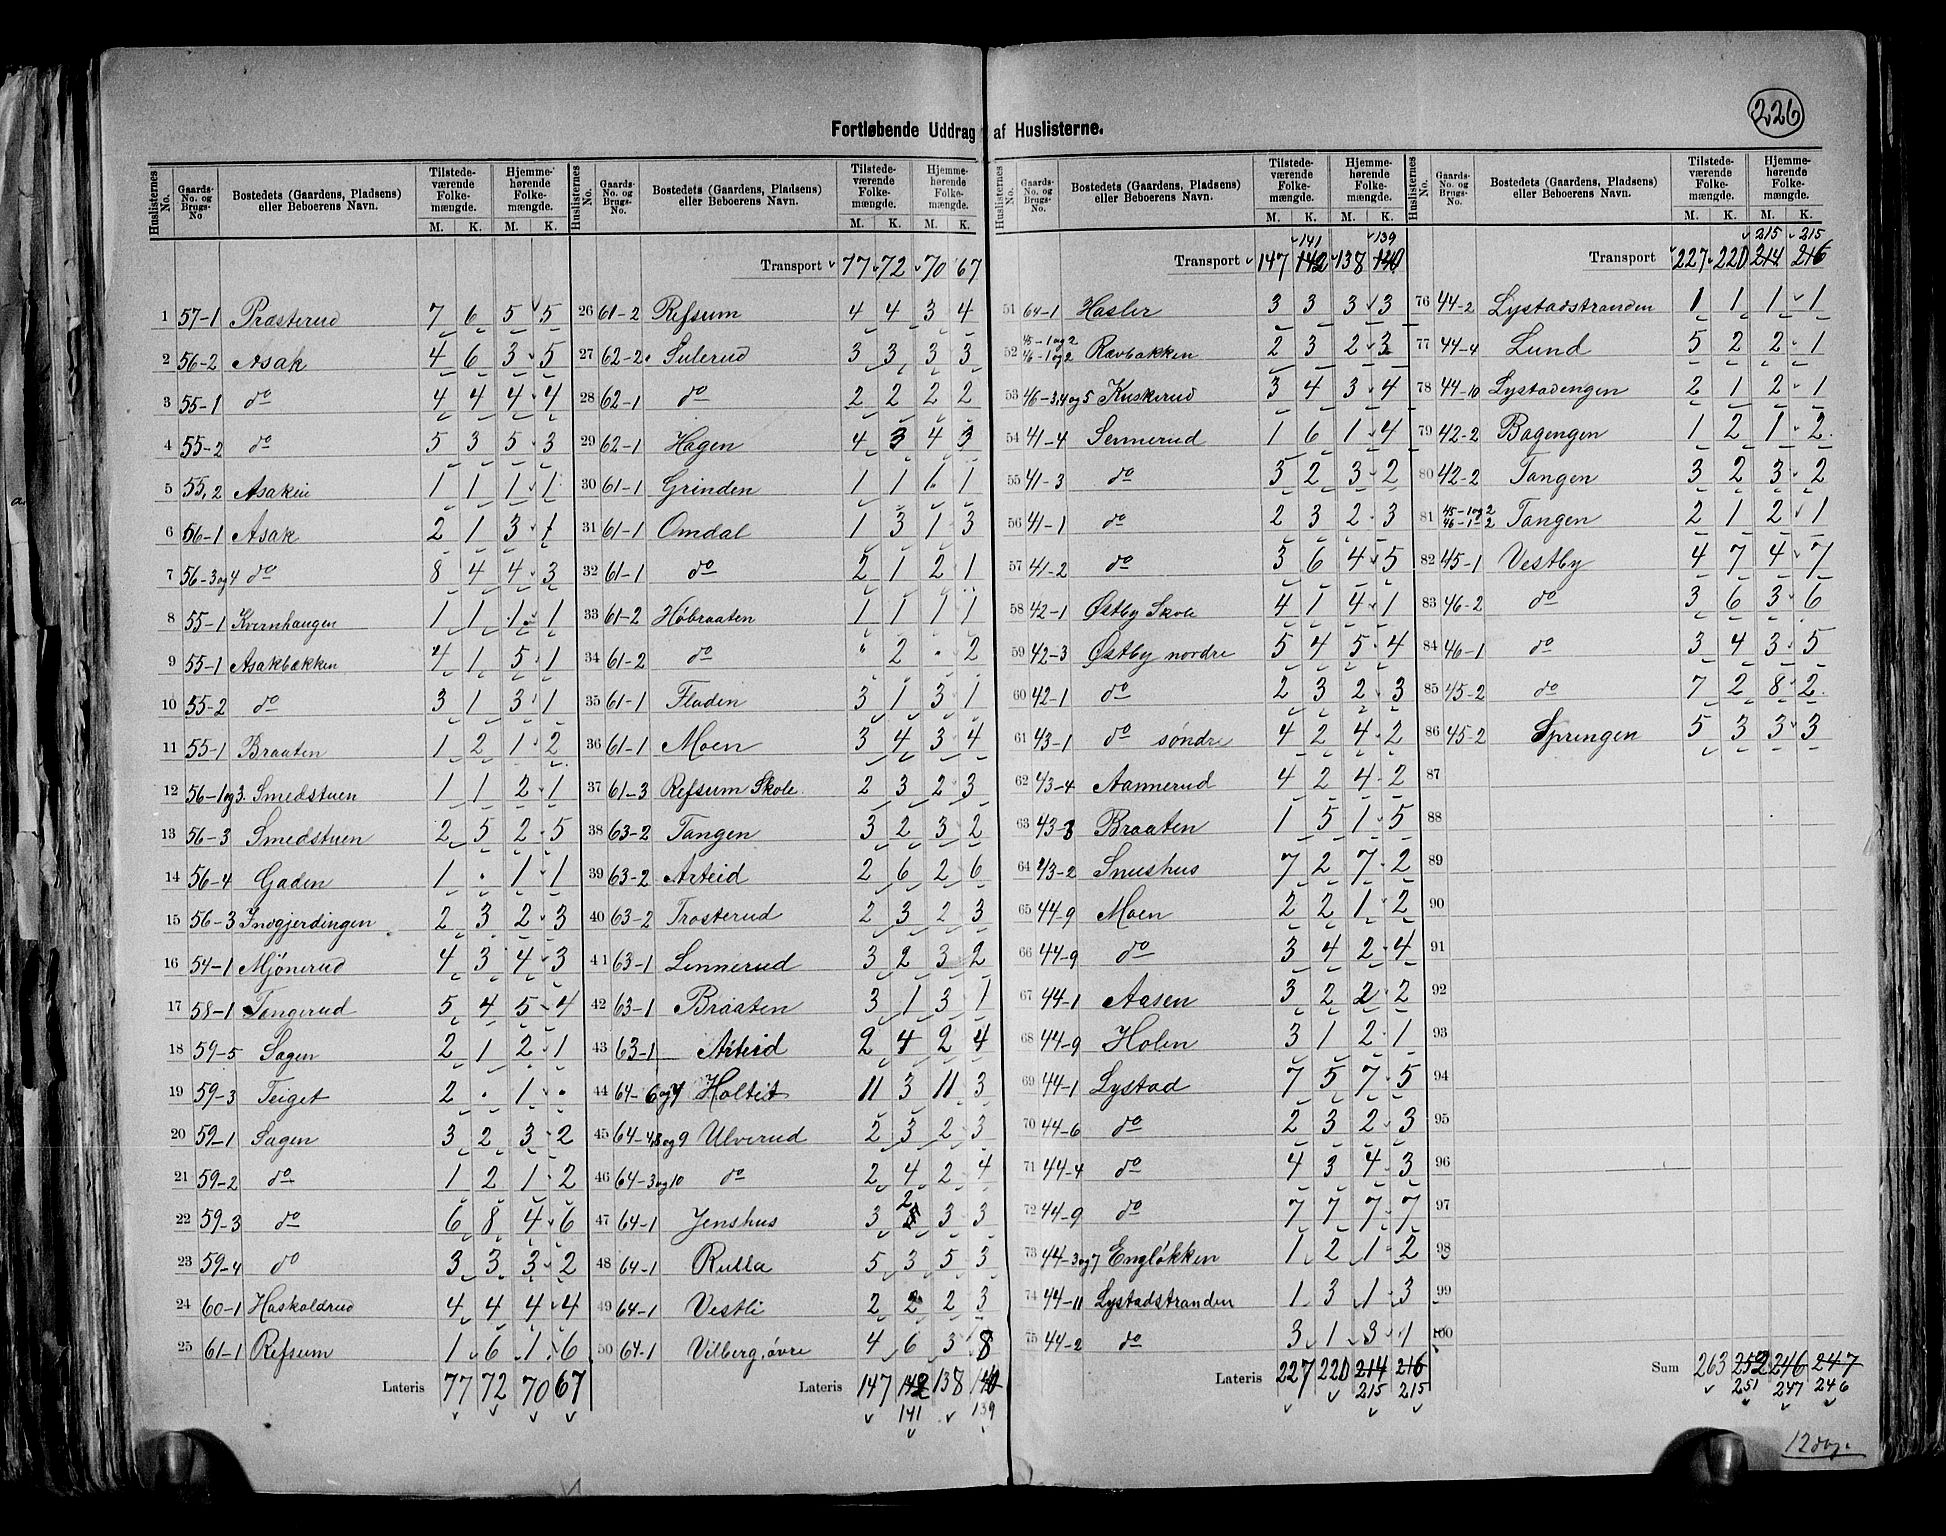 226
Fortløbende Uddrag af Huslisterne.
Huslisternes No. | Gaards-No. og Brugs-No | Bostedets (Gaardens, Pladsens) eller Beboerens Navn. | Tilstedeværende Folkemængde. M. K. | Hjemmehørende Folkemængde. M. K.
1 57-1 Præsterud 7 6 5 5
2 56-2 Asak 4 6 3 5
3 55-1 do 4 4 4 4
4 55-2 do 5 3 5 3
5 55,2 Asakeie 1 1 1 1
6 56-1 Asak 2 1 3 1
7 56-3og4 do 8 4 4 3
8 55-1 Kvernhaugen 1 1 1 1
9 55-1 Asakbækken 4 1 5 1
10 55-2 do 3 1 3 1
11 55-1 Braaten 1 2 1 2
12 56-1og3. Smedstuen 1 1 2 1
13 56-3 Smedstuen 2 5 2 5
14 56-4 Gaden 1 . 1 1
15 56-3 Indgjerdingen 2 3 2 3
16 54-1 Mjønerud 4 3 4 3
17 58-1 Tangerud 5 4 5 4
18 59-5 Sagen 2 1 2 1
19 59-3 Teiget 2 . 1 .
20 59-1 Sagen 3 2 3 2
21 59-2 do 1 2 1 2
22 59-3 do 6 8 4 6
23 59-4 do 3 3 3 2
24 60-1 Haskoldrud 4 4 4 4
25 61-1 Refsum 1 6 1 6
Lateris 77 72 70 67
Huslisternes No. | Gaards-No. og Brugs-No. | Bostedets (Gaardens, Pladsens) eller Beboerens Navn. | Tilstedeværende Folkemængde. M. K. | Hjemmehørende Folkemængde. M. K.
Transport 77 72 70 67
26 61-2 Refsum 4 4 3 4
27 62-2 Sulerud 3 3 3 3
28 62-1 do 2 2 2 2
29 62-1 Hagen 4 3 4 3
30 61-1 Grinden 1 1 1 1
31 61-1 Omdal 1 3 1 3
32 61-1 do 2 1 2 1
33 61-2 Høbraaten 1 1 1 1
34 61-2 do " 2 . 2
35 61-1 Fladen 3 1 3 1
36 61-1 Moen 3 4 3 4
37 61-3 Refsum Skole 2 3 2 3
38 63-2 Tangen 3 2 3 2
39 63-2 Arteid 2 6 2 6
40 63-2 Trosterud 2 3 2 3
41 63-1 Lennerud 3 2 3 2
42 63-1 Braaten 3 1 3 1
43 63-1 Arteid 2 4 2 4
44 64-6og7 Holteit 11 3 11 3
45 64-4,8og9 Ulverud 2 3 2 3
46 64-3og10 do 2 4 2 4
47 64-1 Jenshus 3 2 3 3
48 64-1 Rulla 5 3 5 3
49 64-1 Vestli 2 2 2 3
50 64-1 Vilberg, øvre 4 6 3 8
Lateris 147 142 138 140
141 139
Huslisternes No. | Gaards-No. og Brugs-No. | Bostedets (Gaardens, Pladsens) eller Beboerens Navn. | Tilstedeværende Folkemængde. M. K. | Hjemmehørende Folkemængde. M. K.
141 139
Transport 147 142 138 140
51 64-1 Hasler 3 3 3 3
52 45-1og2 46-1og2 Rævbakken 2 3 2 3
53 46-3,4og5 Kuskerud 3 4 3 4
54 41-4 Sennerud 1 6 1 4
55 41-3 do 3 2 3 2
56 41-1 do 2 3 2 3
57 41-2 do 3 6 4 5
58 42-1 Østby Skole 4 1 4 1
59 42-3 Østby nordre 5 4 5 4
60 42-1 do 2 3 2 3
61 43-1 do søndre 4 2 4 2
62 43-4 Aannerud 4 2 4 2
63 43-3 Braaten 1 5 1 5
64 43-2 Snushus 7 2 7 2
65 44-9 Moen 2 2 1 2
66 44-9 do 3 4 2 4
67 44-1 Aasen 3 2 2 2
68 44-9 Holen 3 1 2 1
69 44-1 Lystad 7 5 7 5
70 44-6 do 2 3 2 3
71 44-4 do 4 3 4 3
72 44-9 do 7 7 7 7
73 44-3og7 Engløkken 1 2 1 2
74 44-11 Lystadstranden 1 3 1 3
75 44-2 do 3 1 3 1
Lateris 227 220 214 216
215 215
Huslisternes No. | Gaards-No. og Brugs-No. | Bostedets (Gaardens, Pladsens) eller Beboerens Navn. | Tilstedeværende Folkemængde. M. K. | Hjemmehørende Folkemængde. M. K.
215 215
Transport 227 220 214 216
76 44-2 Lystadstranden 1 1 1 1
77 44-4 Lund 5 2 2 1
78 44-10 Lystadengen 2 1 2 1
79 42-2 Bagengen 1 2 1 2
80 42-2 Tangen 3 2 3 2
81 45-1og2 46-1-2 Tangen 2 1 2 1
82 45-1 Vestby 4 7 4 7
83 46-2 do 3 6 3 6
84 46-1 do 3 4 3 5
85 45-2 do 7 2 8 2
86 45-2 Springen 5 3 3 3
87
88
89
90
91
92
93
94
95
96
97
98
99
100
Sum 263 252 246 247
251 247 246